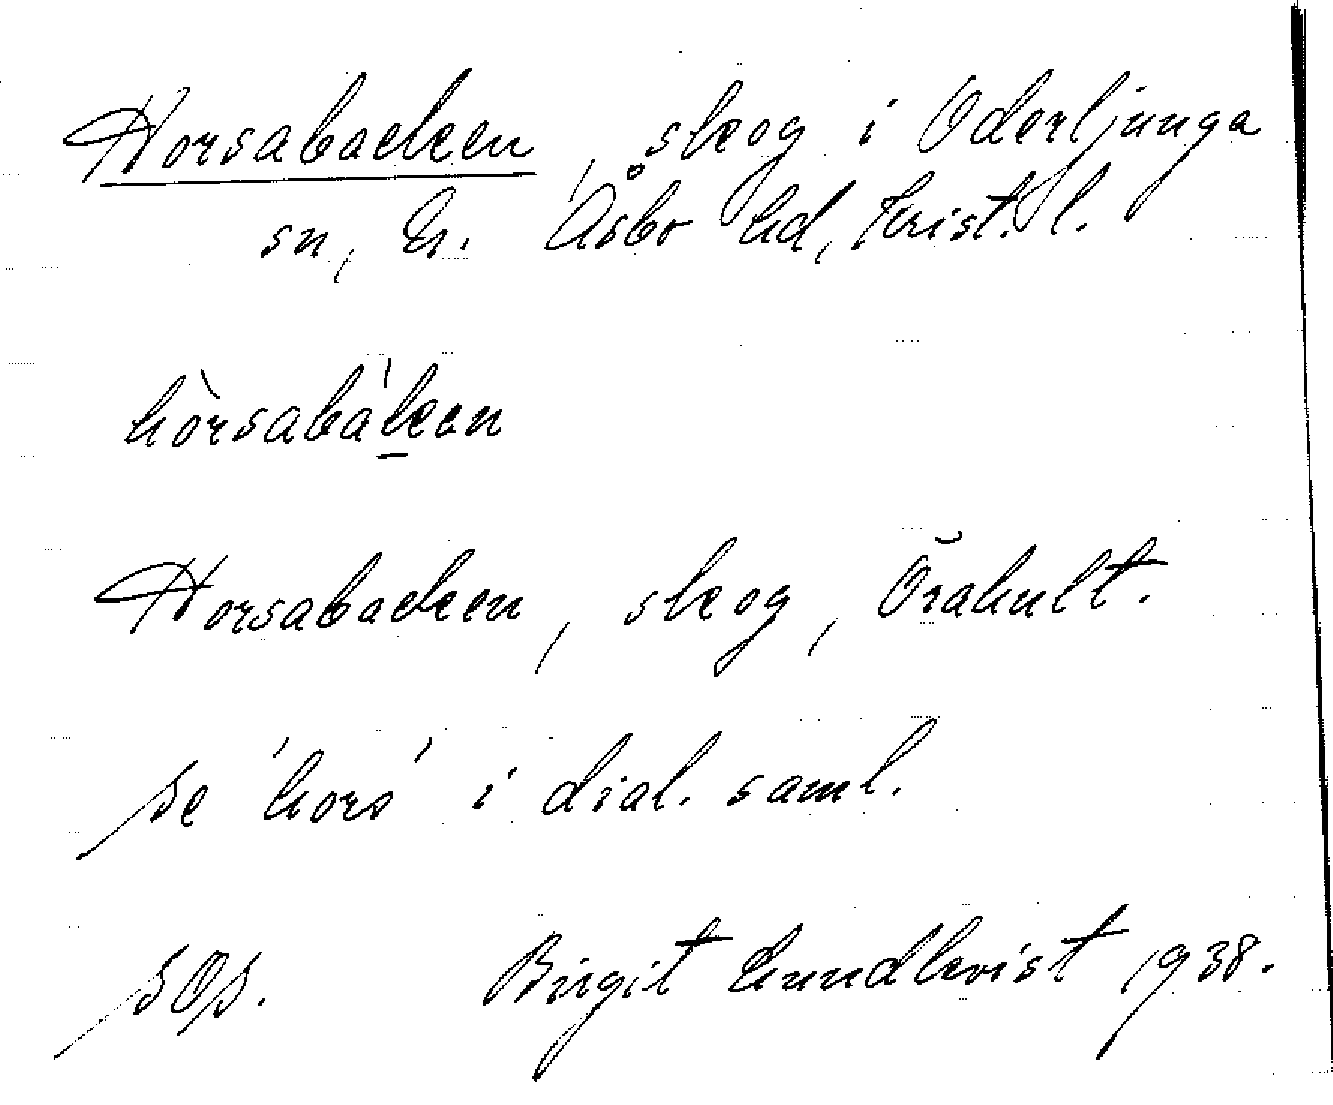 Horsabacken, skog i Oderljunga
sn, N. Åsbo hd, Krist. l.
hòrsabàken
Horsabacken, skog, Örahult.
se 'hors' i dial. saml.
SOS. Birgit Lundkvist 1938.